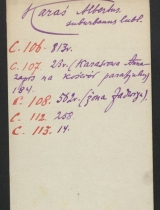 Karaś Albertus
suburbanus lubl.
C. 106. 313v.
C. 107. 23v. (Karasiowa Anna
zapis na kościół parafialny)
184.
C. 108. 562v. (żona Jadwiga).
C. 112. 258
C. 113. 14.